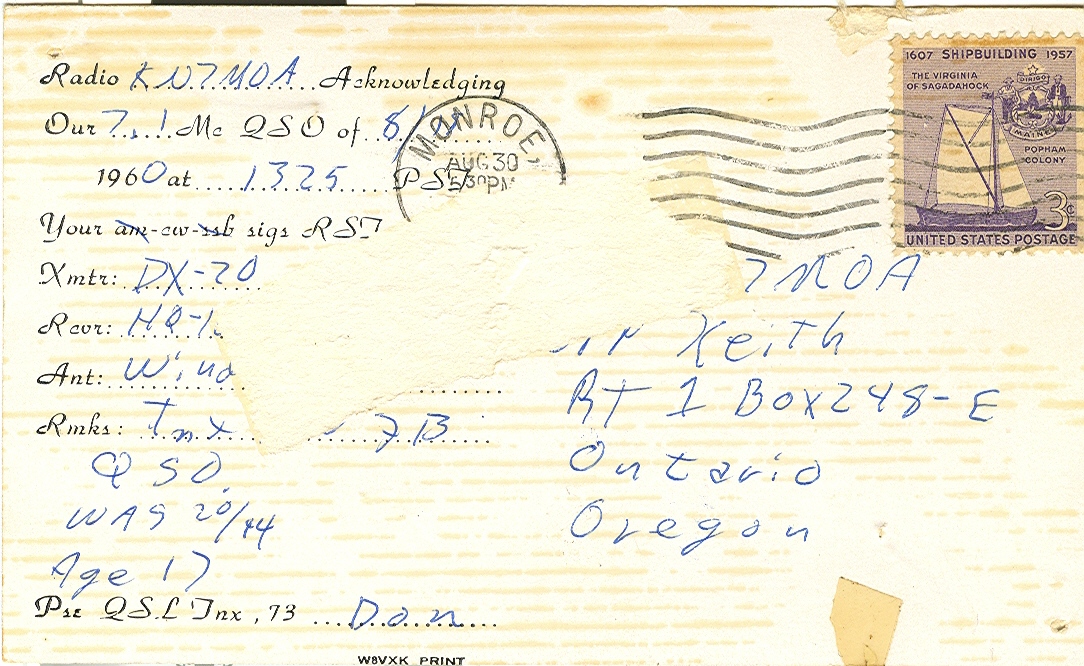 Radio KN7MOA Acknowledging
Our 7.1 Mc QSO of 8/
1960 at 1325 PST
Your am-cw-ssb sigs RST
Xmtr: DX-20
Rcvr: HQ-1
Ant:
Rmks: Tnx FB
QSO.
WAS 20/44
Age 17
Pse QSL Tnx, 73 Don
W8VXK PRINT
MONROE,
AUG 30
5 30 PM
1607 SHIPBUILDING 1957
THE VIRGINIA
OF SAGADAHOCK
DIRIGO
MAINE
POPHAM
COLONY
3¢
UNITED STATES POSTAGE
7MOA
Keith
RT 1 Box 248-E
Ontario
Oregon